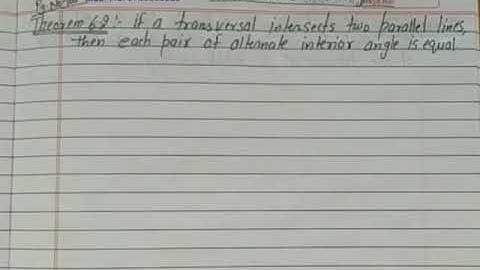 Theorem 6.2:- If a transversal intersects two parallel lines,
then each pair of alternate interior angle is equal